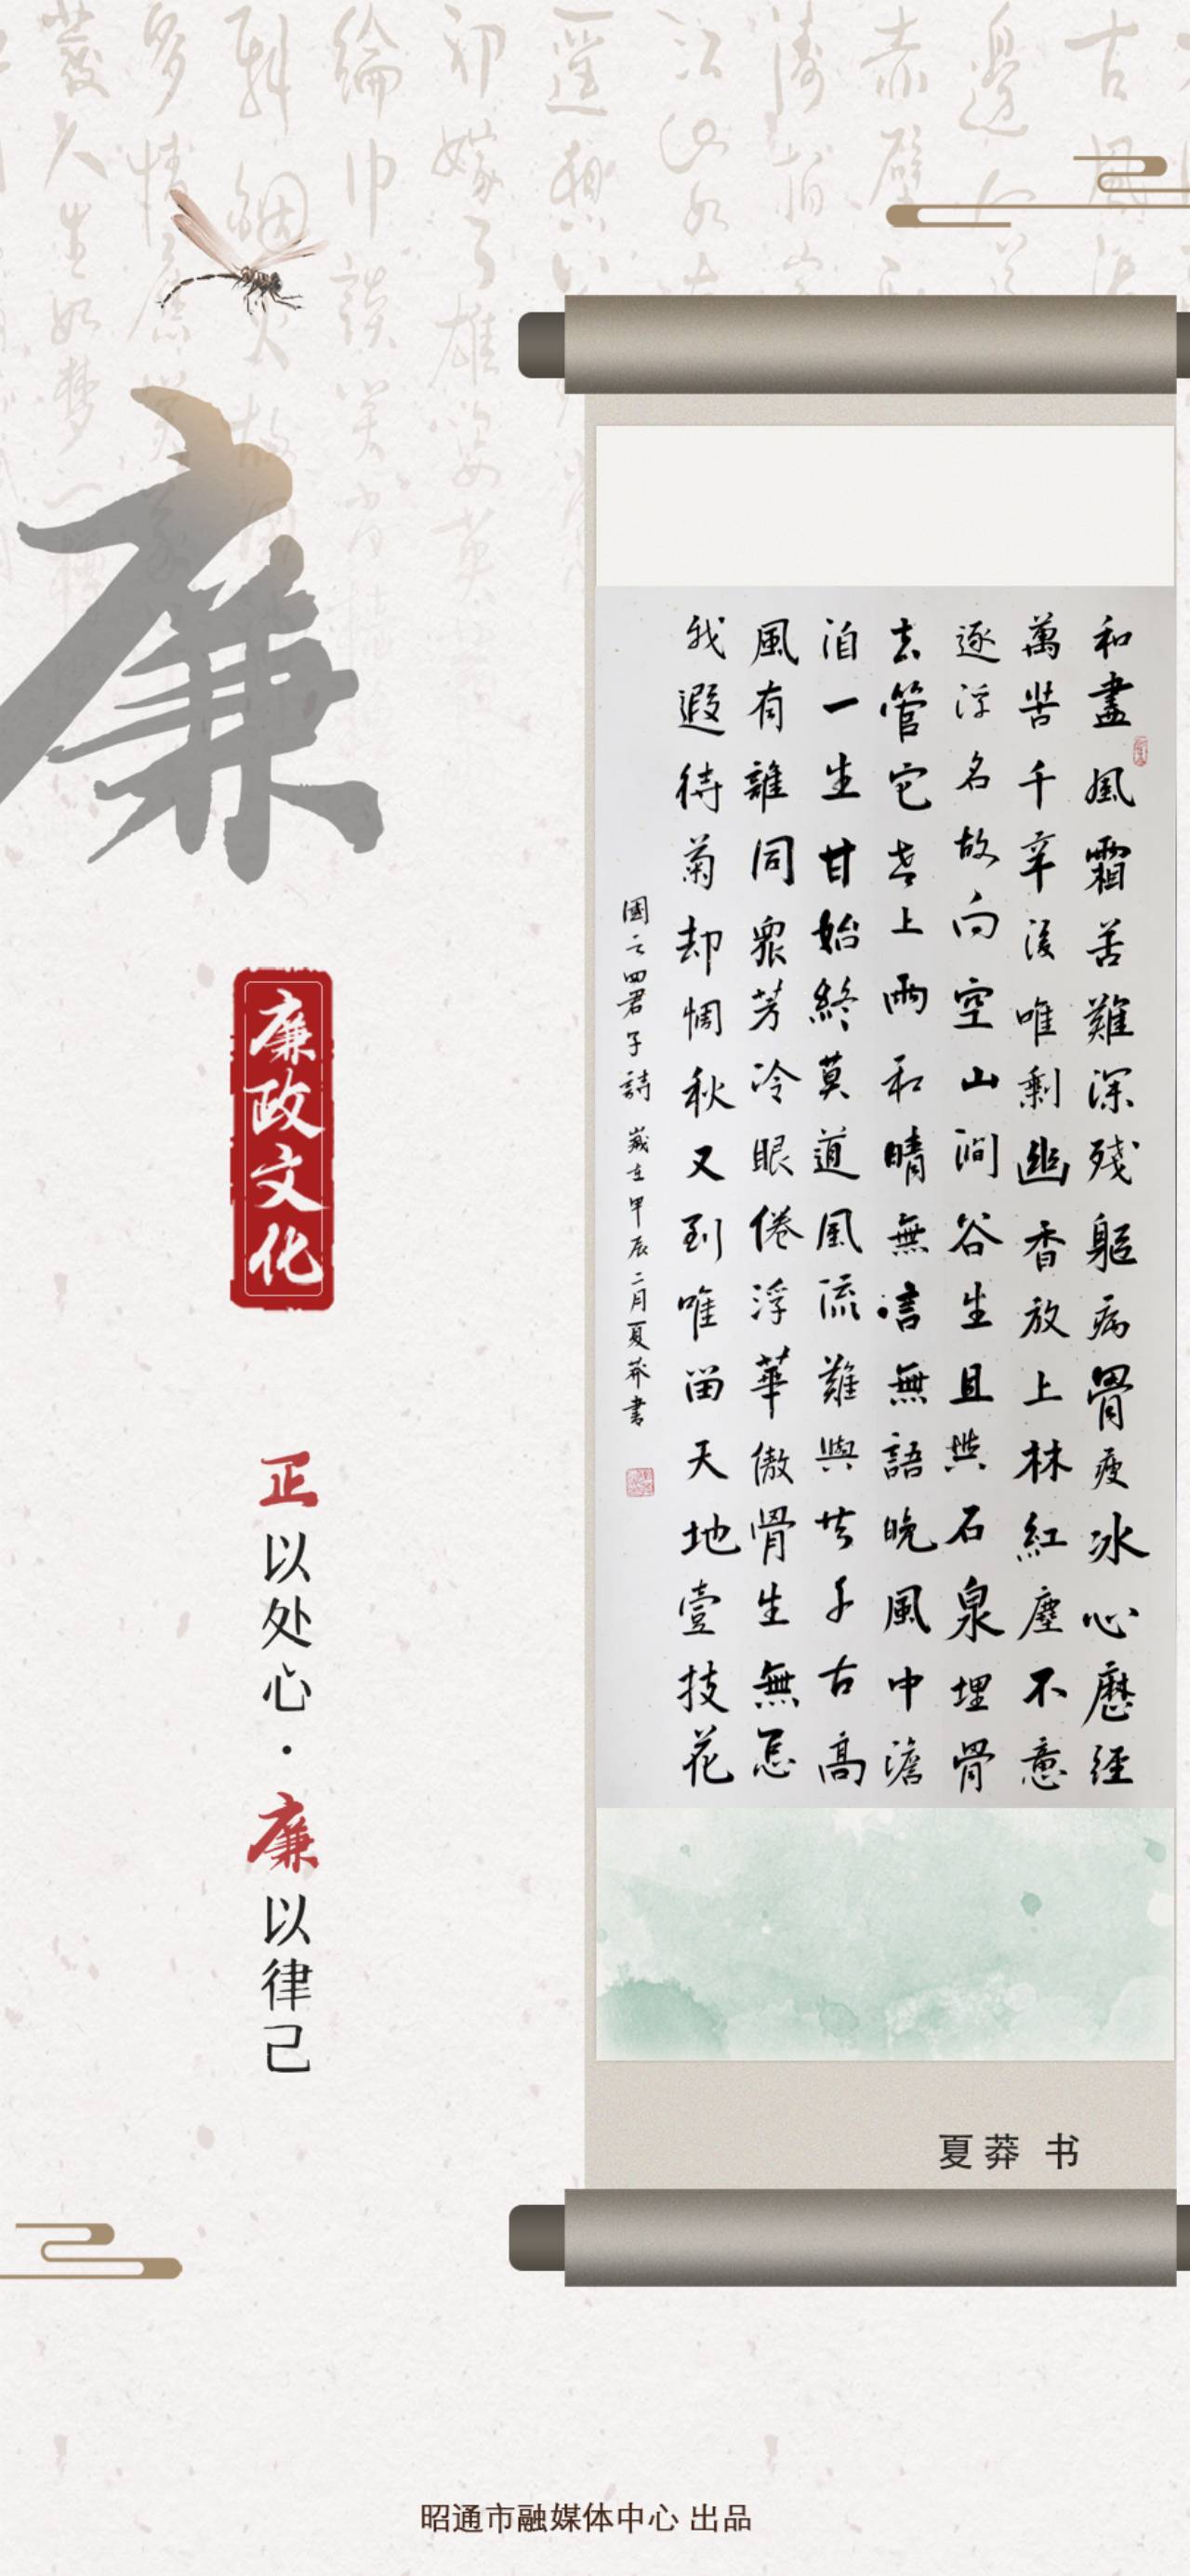 廉
廉政文化
正以处心·廉以律己
和盡風霜苦難深殘軀病骨瘦冰心歷經
萬苦千辛後唯剩幽香放上林紅塵不意
逐浮名故向空山澗谷生且與石泉埋骨
去管它世上雨和晴無言無語晚風中澹
泊一生甘始終莫道風流難與共千古高
風有誰同眾芳冷眼倦浮華傲骨生無
我遐待菊却惆秋又到唯留天地壹技花
國四君子詩 歲在甲辰二月夏莽書
夏莽 书
昭通市融媒体中心 出品